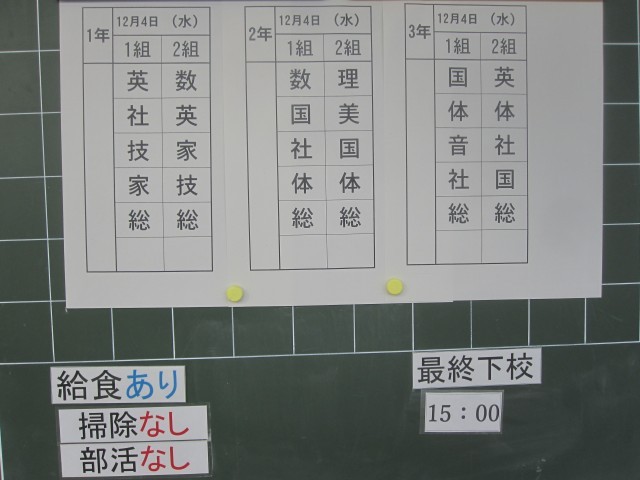 1年 12月4日 （水）
1組 2組
英 数
社 英
技 家
家 技
総 総
2年 12月4日 （水）
1組 2組
数 理
国 美
社 国
体 体
総 総
3年 12月4日 （水）
1組 2組
国 英
体 体
音 社
社 国
総 総
給食あり
掃除なし
部活なし
最終下校
15：00